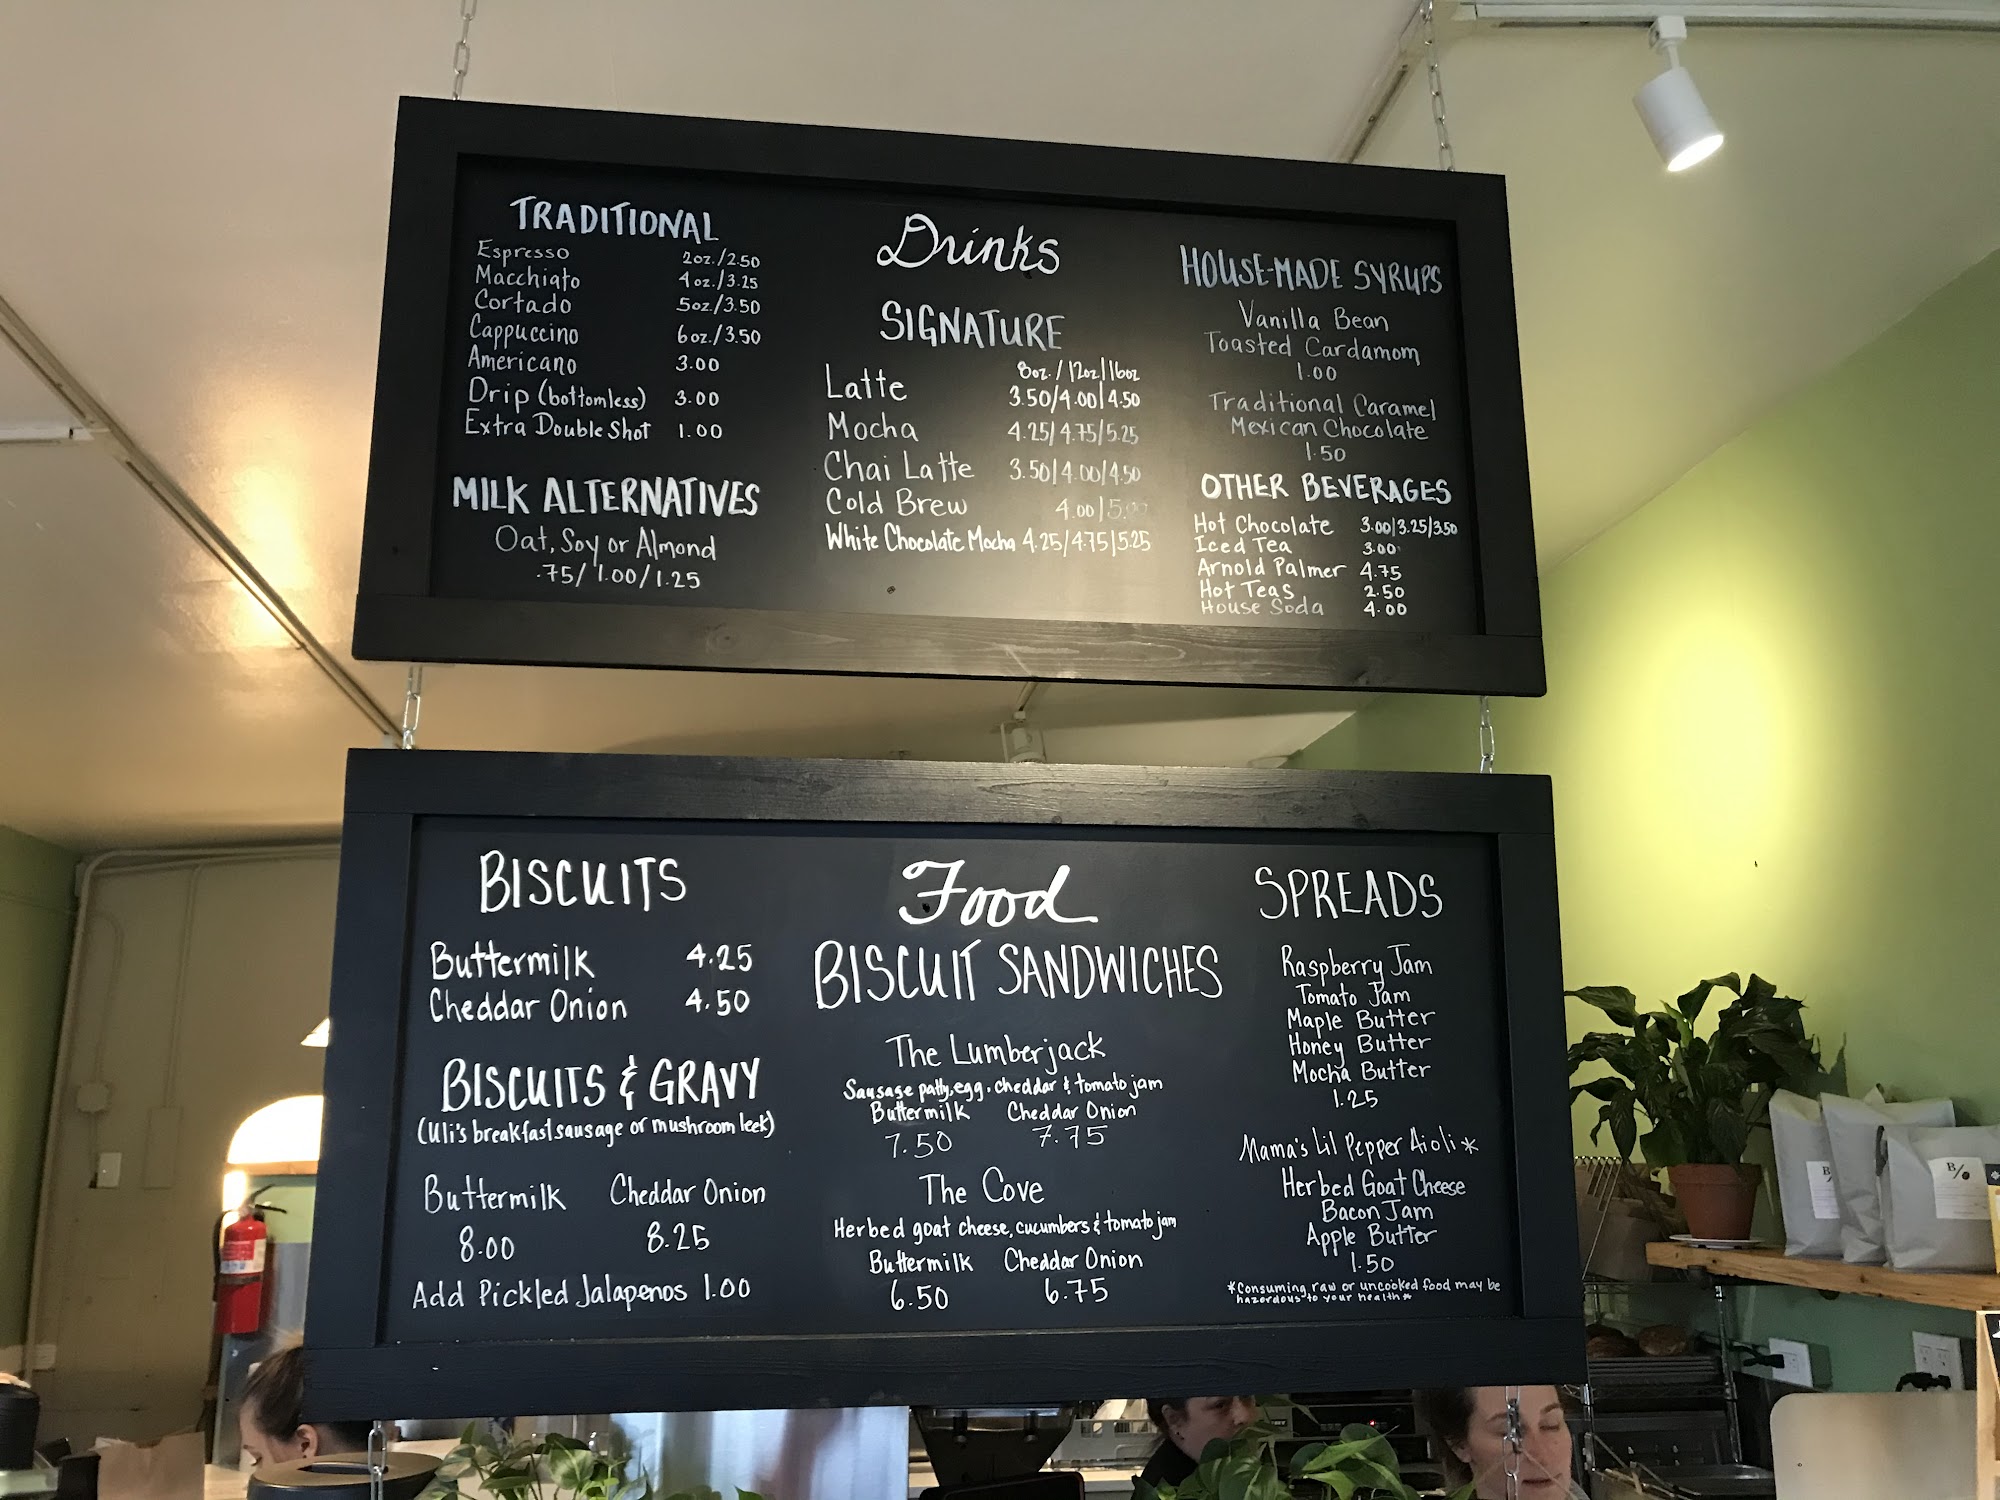 Drinks
TRADITIONAL
Espresso 2oz./2.50
Macchiato 4oz./3.25
Cortado 5oz./3.50
Cappuccino 6oz./3.50
Americano 3.00
Drip (bottomless) 3.00
Extra Double Shot 1.00
MILK ALTERNATIVES
Oat, Soy or Almond
.75/1.00/1.25
SIGNATURE
8oz./12oz|16oz
Latte 3.50/4.00|4.50
Mocha 4.25/4.75/5.25
Chai Latte 3.50|4.00/4.50
Cold Brew 4.00|
White Chocolate Mocha 4.25/4.75|5.25
HOUSE-MADE SYRUPS
Vanilla Bean
Toasted Cardamom
1.00
Traditional Caramel
Mexican Chocolate
1.50
OTHER BEVERAGES
Hot Chocolate 3.00|3.25|3.50
Iced Tea 3.00
Arnold Palmer 4.75
Hot Teas 2.50
House Soda 4.00
Food
BISCUITS
Buttermilk 4.25
Cheddar Onion 4.50
BISCUITS & GRAVY
(Uli's breakfast sausage or mushroom leek)
Buttermilk Cheddar Onion
8.00 8.25
Add Pickled Jalapenos 1.00
BISCUIT SANDWICHES
The Lumberjack
Sausage patty, egg, cheddar & tomato jam
Buttermilk Cheddar Onion
7.50 7.75
The Cove
Herbed goat cheese, cucumbers & tomato jam
Buttermilk Cheddar Onion
6.50 6.75
SPREADS
Raspberry Jam
Tomato Jam
Maple Butter
Honey Butter
Mocha Butter
1.25
Mama's Lil Pepper Aioli*
Herbed Goat Cheese
Bacon Jam
Apple Butter
1.50
*Consuming raw or uncooked food may be
hazordous to your health*